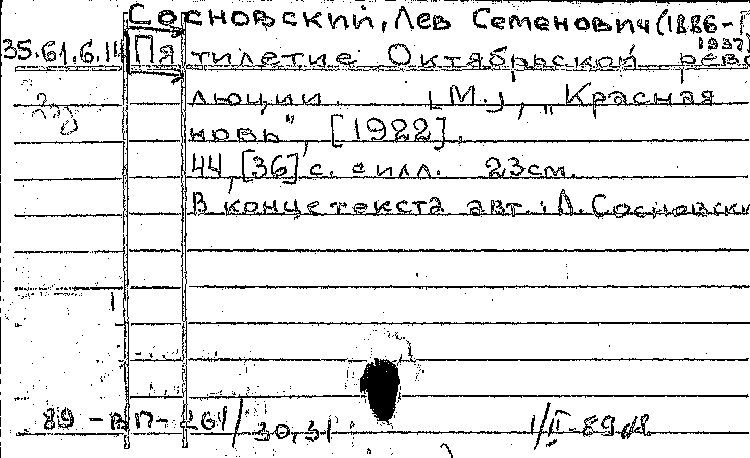 Сосновский, Лев Семенович (1886-[
1937]
35.61.6.14 Пятилетие Октябрьской рево
люции. [М.], „Красная
новь", [1922].
44, [36] с. с илл. 23см.
В конце текста авт.: Л. Сосновски
89-вп-261/30,31 1/II-89